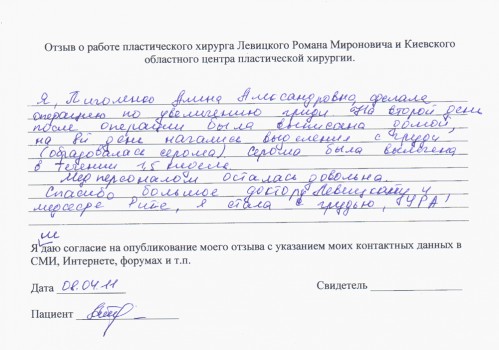 Отзыв о работе пластического хирурга Левицкого Романа Мироновича и Киевского
областного центра пластической хирургии.
Я, Пиголенко Алина Александровна, сделала
операцию по увеличению груди. На второй день
после операции была выписана домой,
на 8й день начались выделения с груди,
(образовалась серома) Серома была вылечена
в течении 1,5 месяца.
Медперсоналом осталась довольна.
Спасибо большое доктору Левицкому и
медсестре Рите, я стала с грудью, УРА!
Я даю согласие на опубликование моего отзыва с указанием моих контактных данных в
СМИ, Интернете, форумах и т.п.
Дата 08.04.11 Свидетель
Пациент